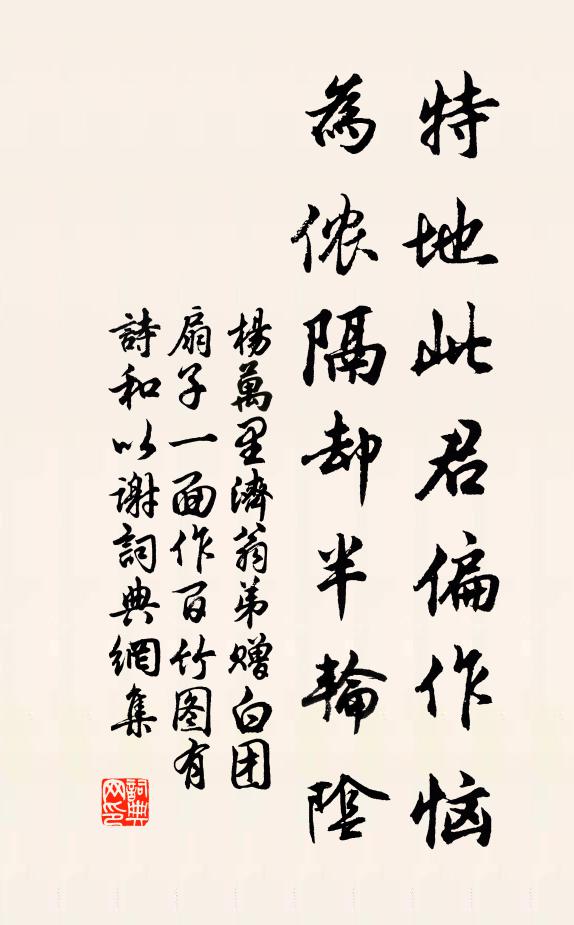 特地此君偏作恼
為侬隔却半輪陰
楊萬里濟翁弟赠白团
扇子一面作百竹图有
詩和以谢詞典網集
詞典网印